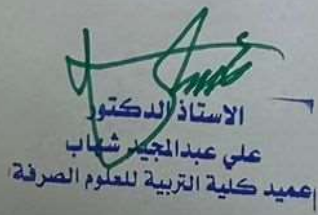 الاستاذ الدكتور
علي عبدالمجيد شهاب
عميد كلية التربية للعلوم الصرفة